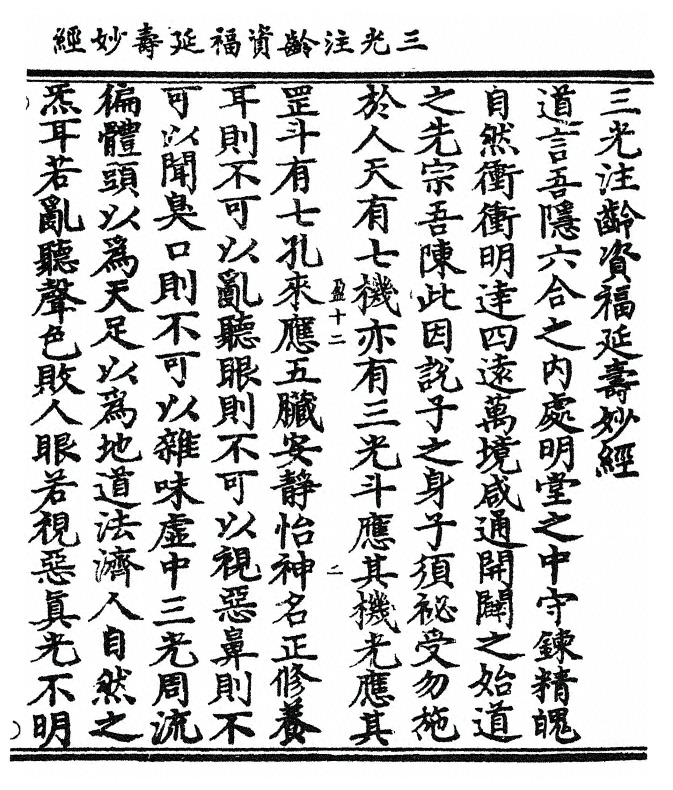 三光注齡資福延壽妙經
三光注齡資福延壽妙經
道言吾隱六合之內處明堂之中守鍊精魄
自然衝衝明達四遠萬境咸通開闢之始道
之先宗吾陳此因說子之身子須祕受勿施
於人天有七機亦有三光斗應其機光應其
盈十二
二
罡斗有七孔來應五臟安靜怡神名正修養
耳則不可以亂聽眼則不可以視惡鼻則不
可以聞臭口則不可以雜味虛中三光周流
徧體頭以為天足以為地道法濟人自然之
炁耳若亂聽聲色敗人眼若視惡真光不明